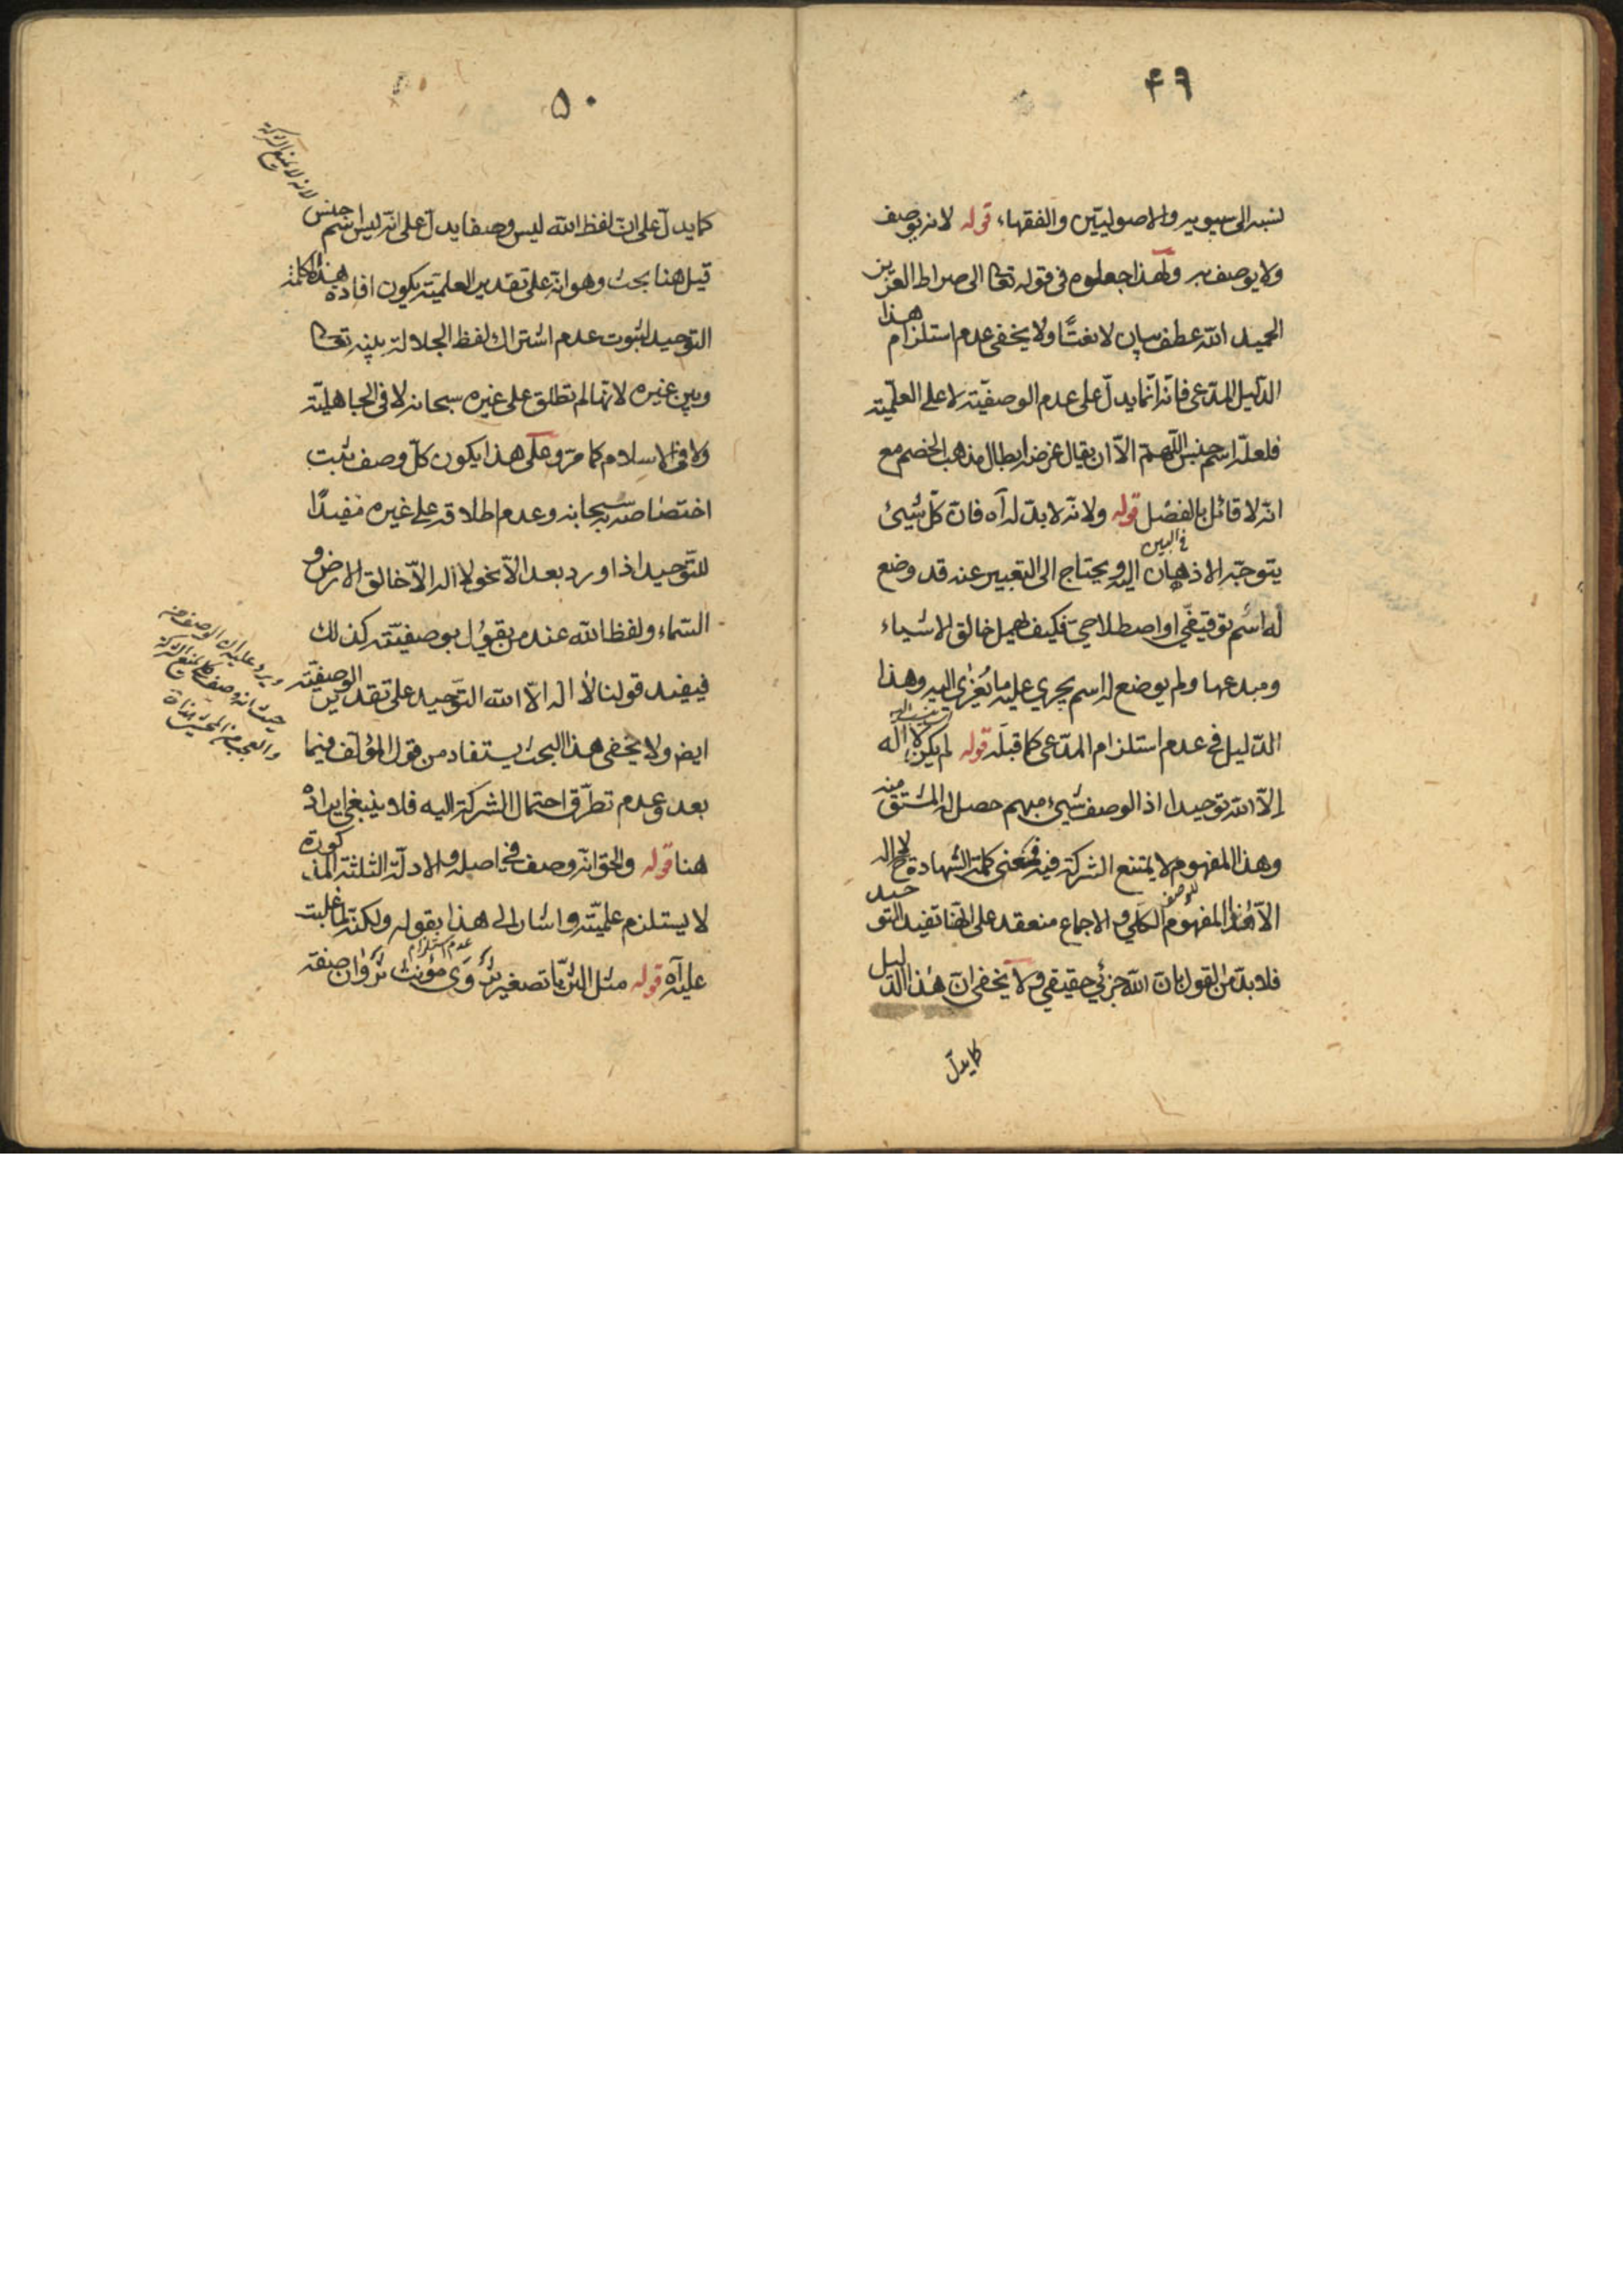 ۴۹
نسبه الى سيبويه والاصوليّين والفقهاء، قوله لانه يوصف
ولا يوصف به ولهذا جعلوه في قوله تعا الى صراط العزيز
الحميد الله عطف بيان لا نعتًا ولا يخفى عدم استلزام هذا
الدّليل المدّعى فانّه انّما يدلّ على عدم الوصفيّته لا على العلميّته
فلعلّه اسم جنس اللّهمّ الاّ ان يقال غرضه ابطال مذهب الخصم مع
انّه لا قائل بالفصل قوله ولانّه لا بدّ له آه فانّ كلّ شيئ
في البين
يتوجّه الاذهان اليه ويحتاج الى التعبير عنه قد وضع
له اسم توقيفّي او اصطلاحيّ فكيف اهمل خالق الاشياء
ومبدعها ولم يوضع له اسم يجري عليه ما يُعزٰى اليه وهذا
الدّليل في عدم استلزام المدّعى كما قبله قوله لم يكن لا اله
إلاّ الله توحيدا اذ الوصف شيئ مبهم حصل له المشتق منه
وهذا المفهوم لا يمتنع الشركة فيه فمعنى كلمة الشهادة ح لا اله
الاّ هذا المفهوم الكلّي والاجماع منعقد على انّها تفيد التوحيد
فلا بدّ من القول بانّ الله جزئي حقيقي ولا يخفى انّ هذا الدّليل
كما يدلّ
۵۰
لانه لا يمنع الشركة
كما يدلّ على انّ لفظ الله ليس وصفا يدلّ على انّه ليس اسم جنس
قيل هنا بحث وهو انّه على تقدير العلميّته يكون افادة هذه الكلمة
التوحيد لثبوت عدم اشتراك لفظ الجلالة بينه تعا
وبين غيره لانّها لم تطلق على غيره سبحانه لا في الجاهليّته
ولا في الاسلام كما مرّ وعلى هذا يكون كلّ وصف ثبت
اختصاصه به سبحانه وعدم اطلاقه على غيره مفيدًا
للتّوحيد اذا ورد بعد الاّ نحو لا اله الاّ خالق الارض و
السّماء ولفظ الله عند من يقول بوصفيّته كذلك
فيفيد قولنا لا اله الاّ الله التّوحيد على تقدير الوصفيّته
ايض ولا يخفى هذا البحث يستفاد من قول المؤلّف فيما
بعد وعدم تطرّق احتمال الشركة اليه فلا ينبغي ايراده
هنا قوله والحق انّه وصف في اصله والادلّة الثلثة المذكورة
لا يستلزم علميّته واشار الى هذا بقوله ولكنّه لما غلبت
عدم استلزام
عليه آه قوله مثل الثريّا تصغير ثرْوَى مؤنث ثرْوان صفة
ويرد عليه ان الوصف من
حيث انه وصف كلّي لا يمنع الشركة